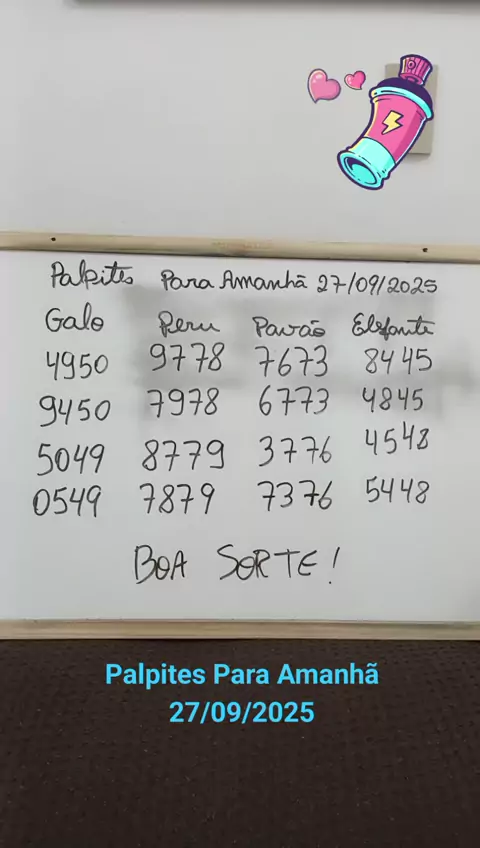 Palpites Para Amanhã 27/09/2025
Galo Peru Pavão Elefante
4950 9778 7673 8445
9450 7978 6773 4845
5049 8779 3776 4548
0549 7879 7376 5448
BOA SORTE!
Palpites Para Amanhã
27/09/2025